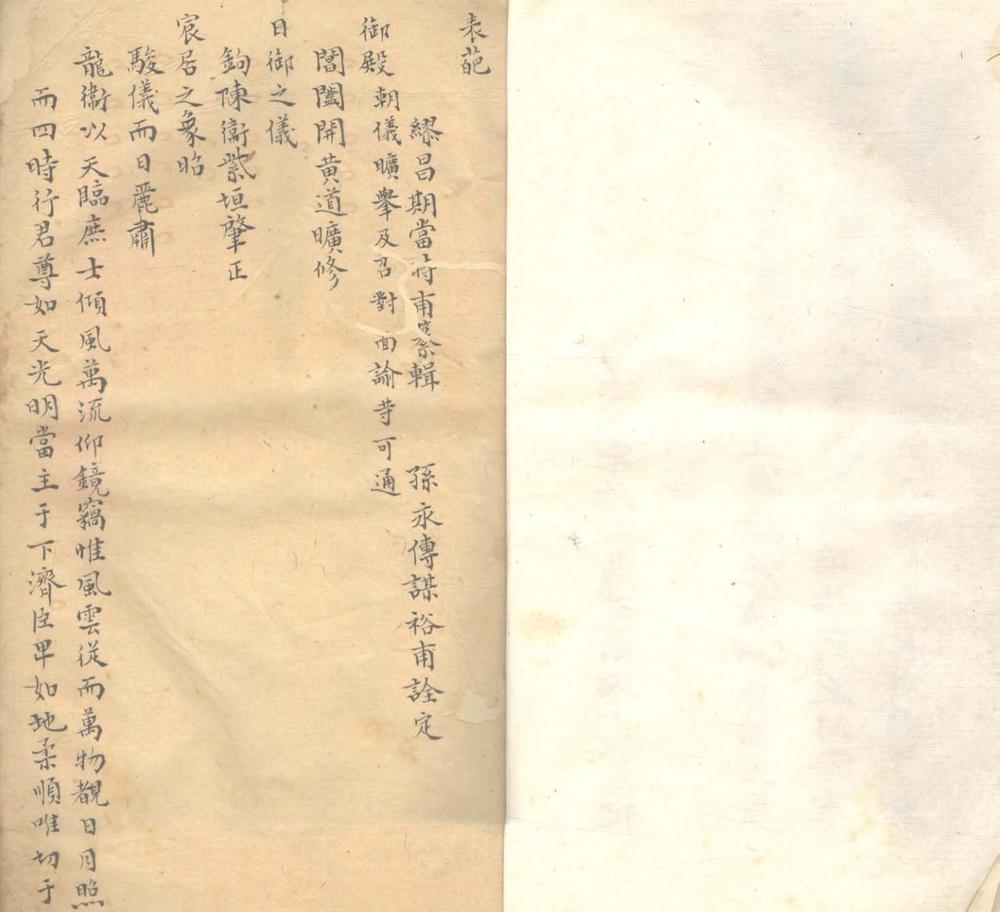 表葩
繆昌期當時甫纂輯 孫永傳謀裕甫詮定
御殿朝儀曠舉及召對面諭等可通
閶闔開黃道曠修
日御之儀
鉤陳衞紫垣肇正
宸居之象昭
駿儀而日麗肅
龍衞以天臨庶士傾風萬流仰鏡竊惟風雲從而萬物覩日月照
而四時行君尊如天光明當主于下濟臣卑如地柔順唯切于